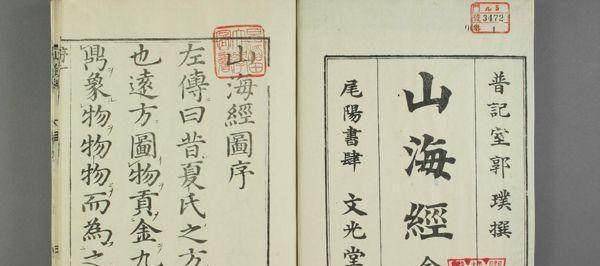 3472
1
晋記室郭璞撰
山海經
尾陽書肆 文光堂
山海經圖序
左傳曰昔夏氏之方
也遠方圖物貢金九
鼎象物物物而為之